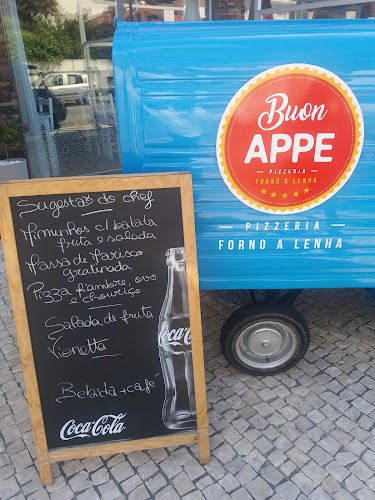 Buon
APPE
PIZZERIA
FORNO A LENHA
PIZZERIA
FORNO A LENHA
Sugestão do chef
Mimunhos c/ batata
fruta e salada
Massa de Marisco
gratinada
Pizza fiambre, ovo
e chouriço
Salada de fruta
Vienetta
Bebida + café
Coca-Cola
Coca-Cola